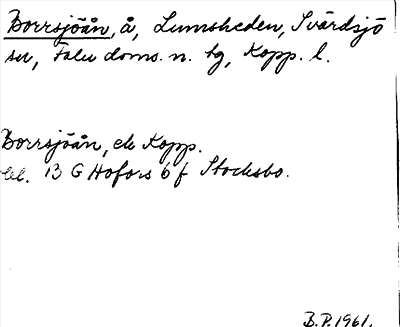 Borrsjöån, å, Lumsheden, Svärdsjö
sn, Falu doms. n. tg, Kopp. l.
Borrsjöån, ek Kopp.
bl. 13 G Hofors 6 f Stocksbo.
B.P. 1961.